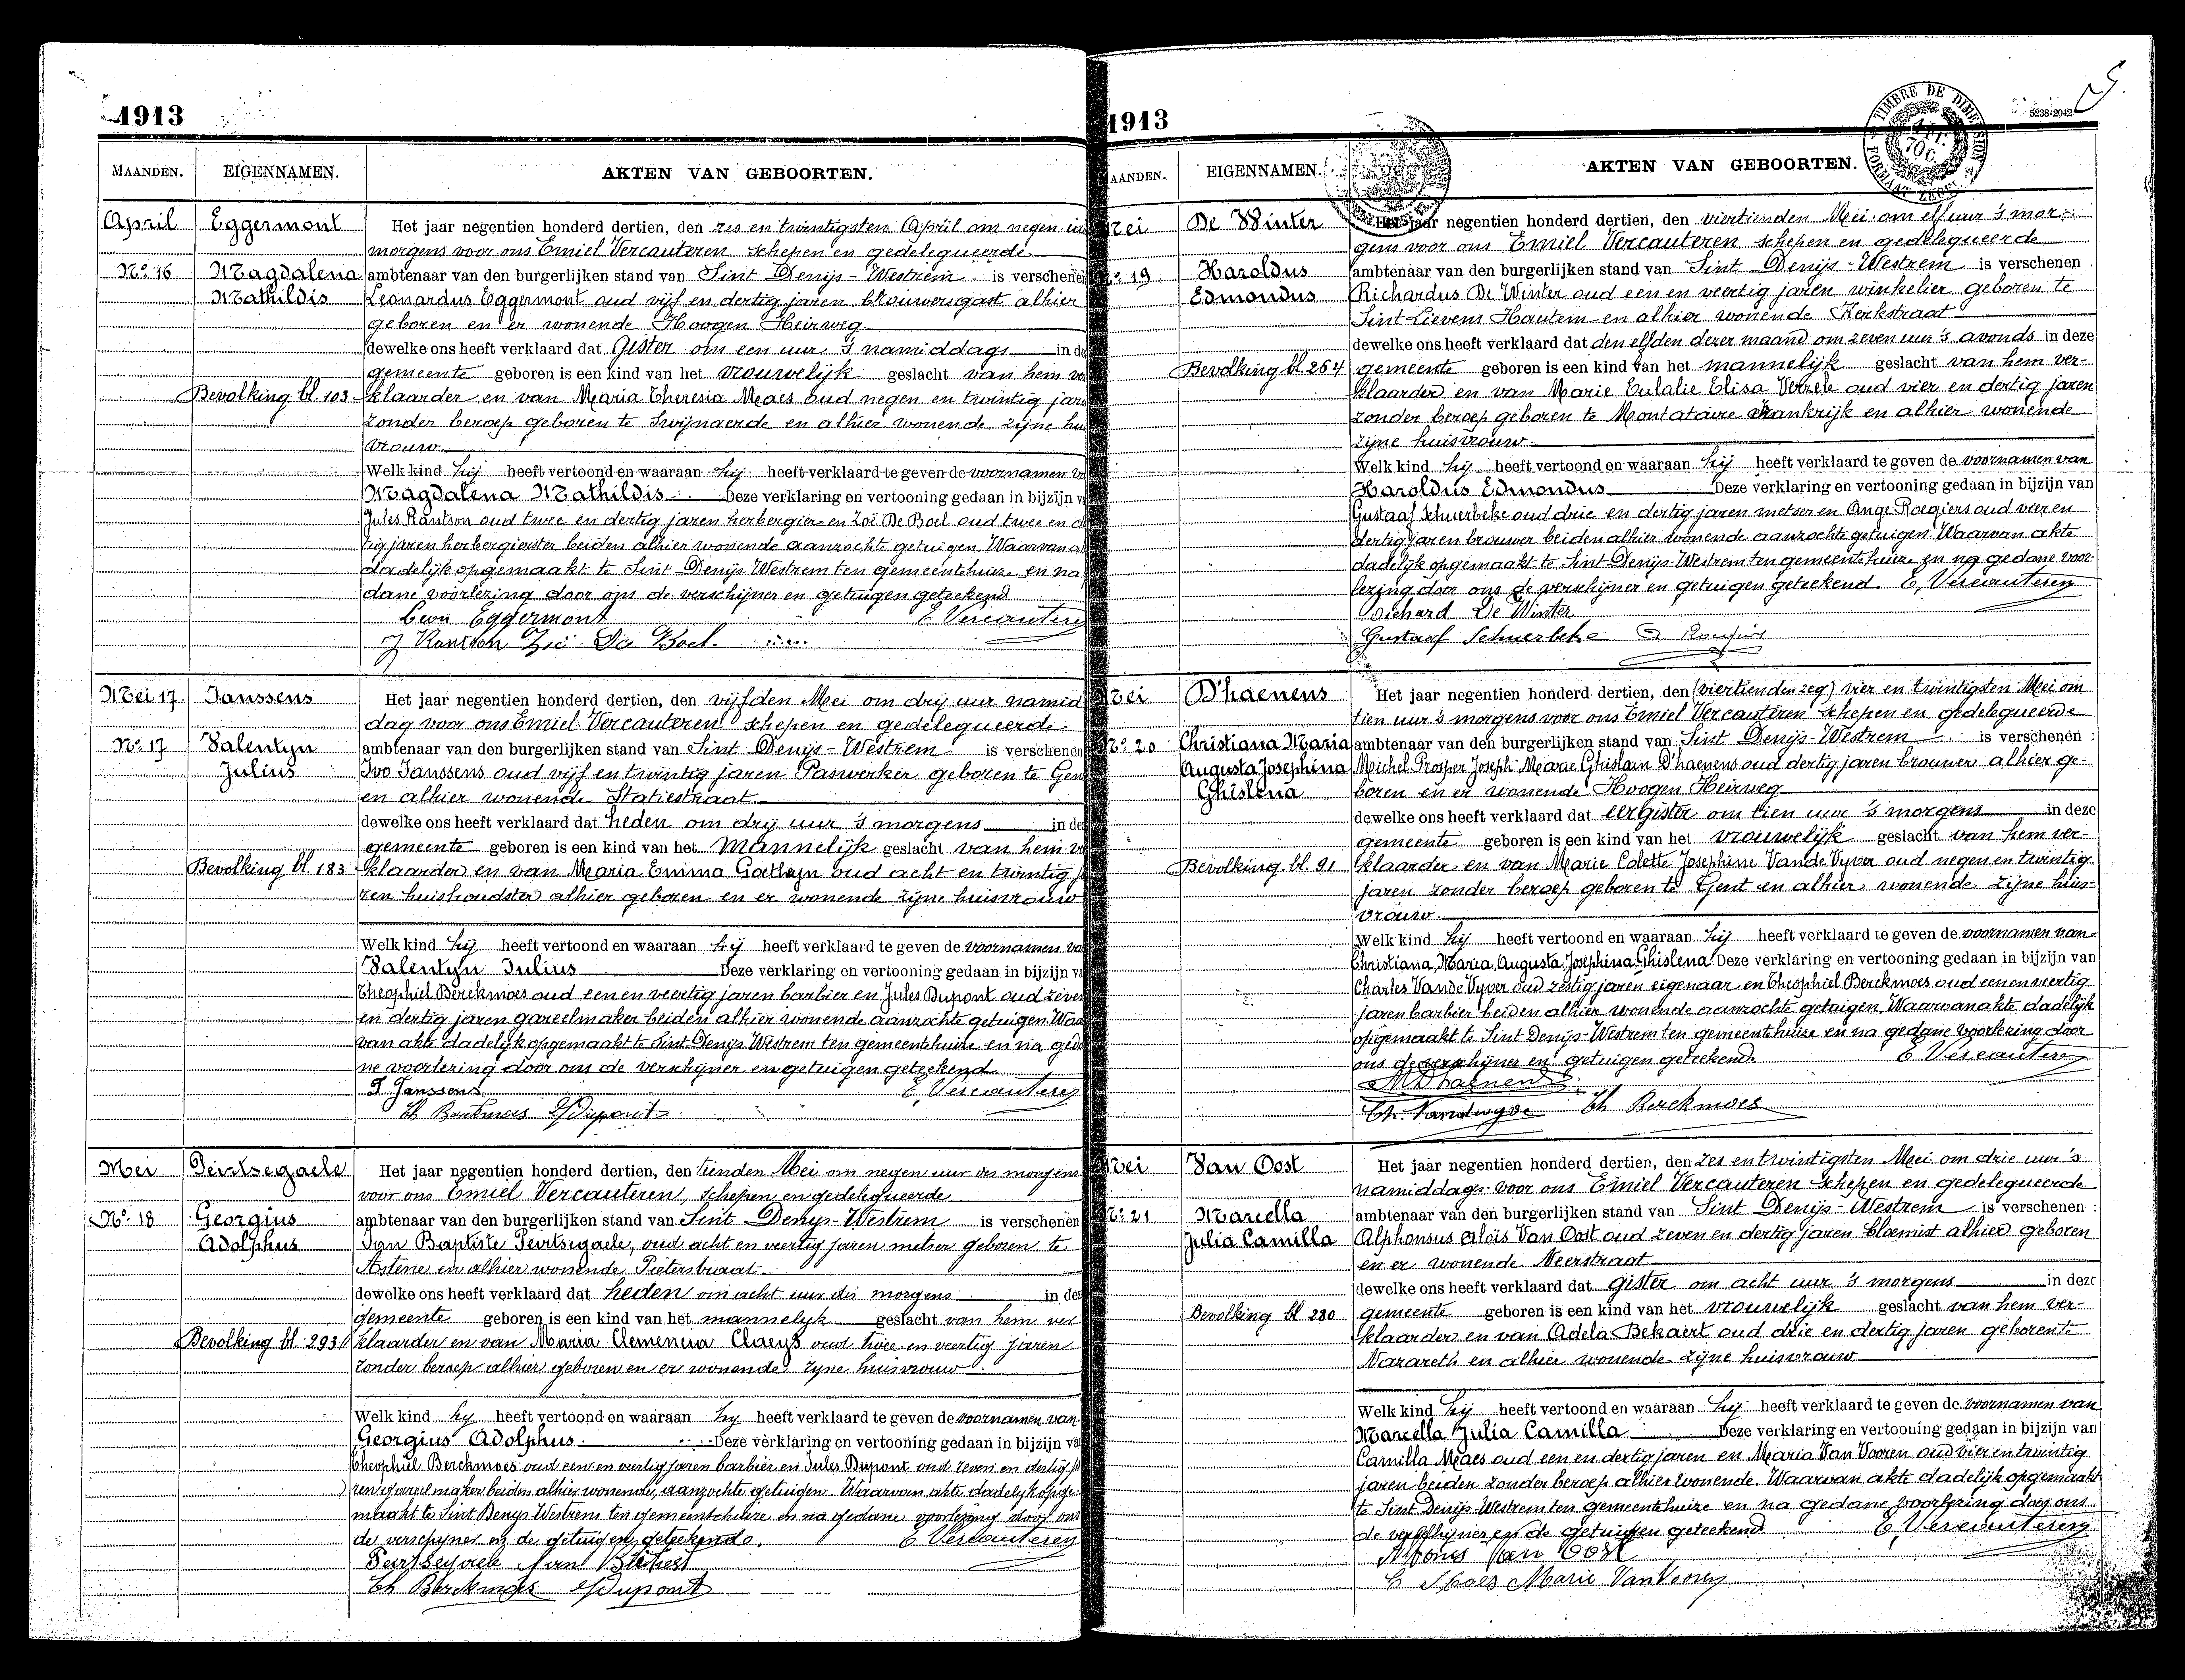 1913
MAANDEN. EIGENNAMEN. AKTEN VAN GEBOORTEN.
April Eggermont Het jaar negentien honderd dertien, den zes en twintigsten April om negen uu
morgens voor ons Emiel Vercauteren schepen en gedelequeerde
No. 16 Magdalena ambtenaar van den burgerlijken stand van Sint Denijs-Westrem is verschenen
Mathildis Leonardus Eggermont oud vijf en dertig jaren brouwersgast alhier
geboren en er wonende Hoogen Heirweg
dewelke ons heeft verklaard dat Gister om een uur 's namiddags in de
gemeente geboren is een kind van het vrouwelijk geslacht van hem v
Bevolking bl. 103 klaarder en van Maria Theresia Maes oud negen en twintig jar
zonder beroep geboren te Swijnaerde en alhier wonende zijne hu
vrouw.
Welk kind hij heeft vertoond en waaraan hij heeft verklaard te geven de voornamen v
Magdalena Mathildis Deze verklaring en vertooning gedaan in bijzijn v
Jules Rantson oud twee en dertig jaren herbergier en Zoë De Boel oud twee en d
tig jaren herbergierster beiden alhier wonende aanzochte getuigen. Waarvan a
dadelijk opgemaakt te Sint Denijs Westrem ten gemeentehuize en na
dane voorlezing door ons de verschijner en getuigen geteekend
Leon Eggermont E Vercautere
J Rantson Zoë De Boel
Mei 17. Janssens Het jaar negentien honderd dertien, den vijfden Mei om drij uur namid
dag voor ons Emiel Vercauteren schepen en gedelequeerde
No. 17 Valentyn ambtenaar van den burgerlijken stand van Sint Denijs-Westrem is verschenen
Julius Ivo Janssens oud vijf en twintig jaren Paswerker geboren te Gen
en alhier wonende Statiestraat
dewelke ons heeft verklaard dat heden om drij uur 's morgens in de
gemeente geboren is een kind van het mannelijk geslacht van hem v
Bevolking bl. 183 klaarder en van Maria Emma Goethyn oud acht en twintig j
ren huishoudster alhier geboren en er wonende zijne huisvrouw
Welk kind hij heeft vertoond en waaraan hij heeft verklaard te geven de voornamen va
Valentyn Julius Deze verklaring en vertooning gedaan in bijzijn v
Theophiel Berckmoes oud een en veertig jaren barbier en Jules Dupont oud zeven
en dertig jaren gareelmaker beiden alhier wonende aanzochte getuigen. Waa
van akte dadelijk opgemaakt te Sint Denijs Westrem ten gemeentehuize en na geda
ne voorlezing door ons de verschijner en getuigen geteekend
I. Janssens E. Vercauteren
Th Berckmoes J Dupont
Mei Peirtsegaele Het jaar negentien honderd dertien, den tienden Mei om negen uur des morgens
voor ons Emiel Vercauteren, schepen en gedelequeerde
No. 18 Georgius ambtenaar van den burgerlijken stand van Sint Denys-Westrem is verschenen
Adolphus Jan Baptiste Peirtsegaele, oud acht en veertig jaren metser geboren te
Astene en alhier wonende Pieterstraat
dewelke ons heeft verklaard dat heden om acht uur des morgens in de
gemeente geboren is een kind van het mannelyk geslacht van hem ver
Bevolking bl. 293 klaarder en van Maria Clemencia Claeys oud twee en veertig jaren
zonder beroep alhier geboren en er wonende zyne huisvrouw
Welk kind hy heeft vertoond en waaraan hy heeft verklaard te geven de voornamen van
Georgius Adolphus. Deze verklaring en vertooning gedaan in bijzijn va
Theophiel Berckmoes oud een en veertig jaren barbier en Jules Dupont oud zeven en dertig j
ren gareelmaker beiden alhier wonende, aanzochte getuigen. Waarvan akte dadelyk opge
maakt te Sint Denys Westrem ten gemeentehuize en na gedane voorlezing door ons
de verschyner en de getuigen geteekend. E Vercauteren
Peirtsegaele Jan
Th Berckmoes J Dupont
1913 5238-2042
TIMBRE DE DIMENSION
MAANDEN. EIGENNAMEN. AKTEN VAN GEBOORTEN.
Mei De Winter Het jaar negentien honderd dertien, den viertienden Mei om elf uur 's mor-
gens voor ons Emiel Vercauteren schepen en gedelequeerde
No. 19 Haroldus ambtenaar van den burgerlijken stand van Sint Denijs-Westrem is verschenen
Edmondus Richardus De Winter oud een en veertig jaren winkelier geboren te
Sint Lievens Hautem en alhier wonende Kerkstraat
dewelke ons heeft verklaard dat den elfden dezer maand om zeven uur 's avonds in deze
Bevolking bl 264 gemeente geboren is een kind van het mannelijk geslacht van hem ver-
klaarder en van Marie Eulalie Elisa Verrele oud vier en dertig jaren
zonder beroep geboren te Montataire Frankrijk en alhier wonende
zijne huisvrouw.
Welk kind hij heeft vertoond en waaraan hij heeft verklaard te geven de voornamen van
Haroldus Edmondus Deze verklaring en vertooning gedaan in bijzijn van
Gustaaf Schuerbeke oud drie en dertig jaren metser en Ange Roegiers oud vier en
dertig jaren brouwer beiden alhier wonende aanzochte getuigen. Waarvan akte
dadelijk opgemaakt te Sint Denijs-Westrem ten gemeentehuize en na gedane voor-
lezing door ons de verschijner en getuigen geteekend. E. Vercauteren
Richard De Winter
Gustaaf Schuerbeke
Mei D'haenens Het jaar negentien honderd dertien, den (viertienden zeg) vier en twintigsten Mei om
tien uur 's morgens voor ons Emiel Vercauteren schepen en gedelequeerde
No. 20 Christiana Maria ambtenaar van den burgerlijken stand van Sint Denijs-Westrem is verschenen :
Augusta Josephina Michel Prosper Joseph Marie Ghislain D'haenens oud dertig jaren brouwer alhier ge-
Ghislena boren en er wonende Hoogen Heirweg
dewelke ons heeft verklaard dat eergister om tien uur 's morgens in deze
gemeente geboren is een kind van het vrouwelijk geslacht van hem ver-
Bevolking. bl. 91 klaarder en van Marie Colette Josephine Vande Vyver oud negen en twintig
jaren zonder beroep geboren te Gent en alhier wonende zijne huis-
vrouw.
Welk kind hij heeft vertoond en waaraan hij heeft verklaard te geven de voornamen van
Christiana, Maria, Augusta, Josephina, Ghislena. Deze verklaring en vertooning gedaan in bijzijn van
Charles Vande Vyver oud zestig jaren eigenaar en Theophiel Berckmoes oud een en veertig
jaren barbier beiden alhier wonende aanzochte getuigen. Waarvan akte dadelijk
opgemaakt te Sint Denijs-Westrem ten gemeentehuize en na gedane voorlezing door
ons de verschijner en getuigen geteekend. E Vercauteren
M Dhaenens
Ch. Vandevyver Th Berckmoes
Mei Van Oost Het jaar negentien honderd dertien, den zes en twintigsten Mei om drie uur 's
namiddags voor ons Emiel Vercauteren schepen en gedelequeerde
No. 21 Marcella ambtenaar van den burgerlijken stand van Sint Denijs-Westrem is verschenen :
Julia Camilla Alphonsus Aloïs Van Oost oud zeven en dertig jaren bloemist alhier geboren
en er wonende Neerstraat
dewelke ons heeft verklaard dat gister om acht uur 's morgens in deze
Bevolking bl 280 gemeente geboren is een kind van het vrouwelijk geslacht van hem ver-
klaarder en van Adela Bekaert oud drie en dertig jaren geboren te
Nazareth en alhier wonende zijne huisvrouw
Welk kind hij heeft vertoond en waaraan hij heeft verklaard te geven de voornamen van
Marcella Julia Camilla Deze verklaring en vertooning gedaan in bijzijn van
Camilla Maes oud een en dertig jaren en Maria Van Vooren oud vier en twintig
jaren beiden zonder beroep alhier wonende. Waarvan akte dadelijk opgemaakt
te Sint Denijs-Westrem ten gemeentehuize en na gedane voorlezing door ons
de verschijner en de getuigen geteekend E. Vercauteren
Alfons Van Oost
C Maes Marie Van Vooren